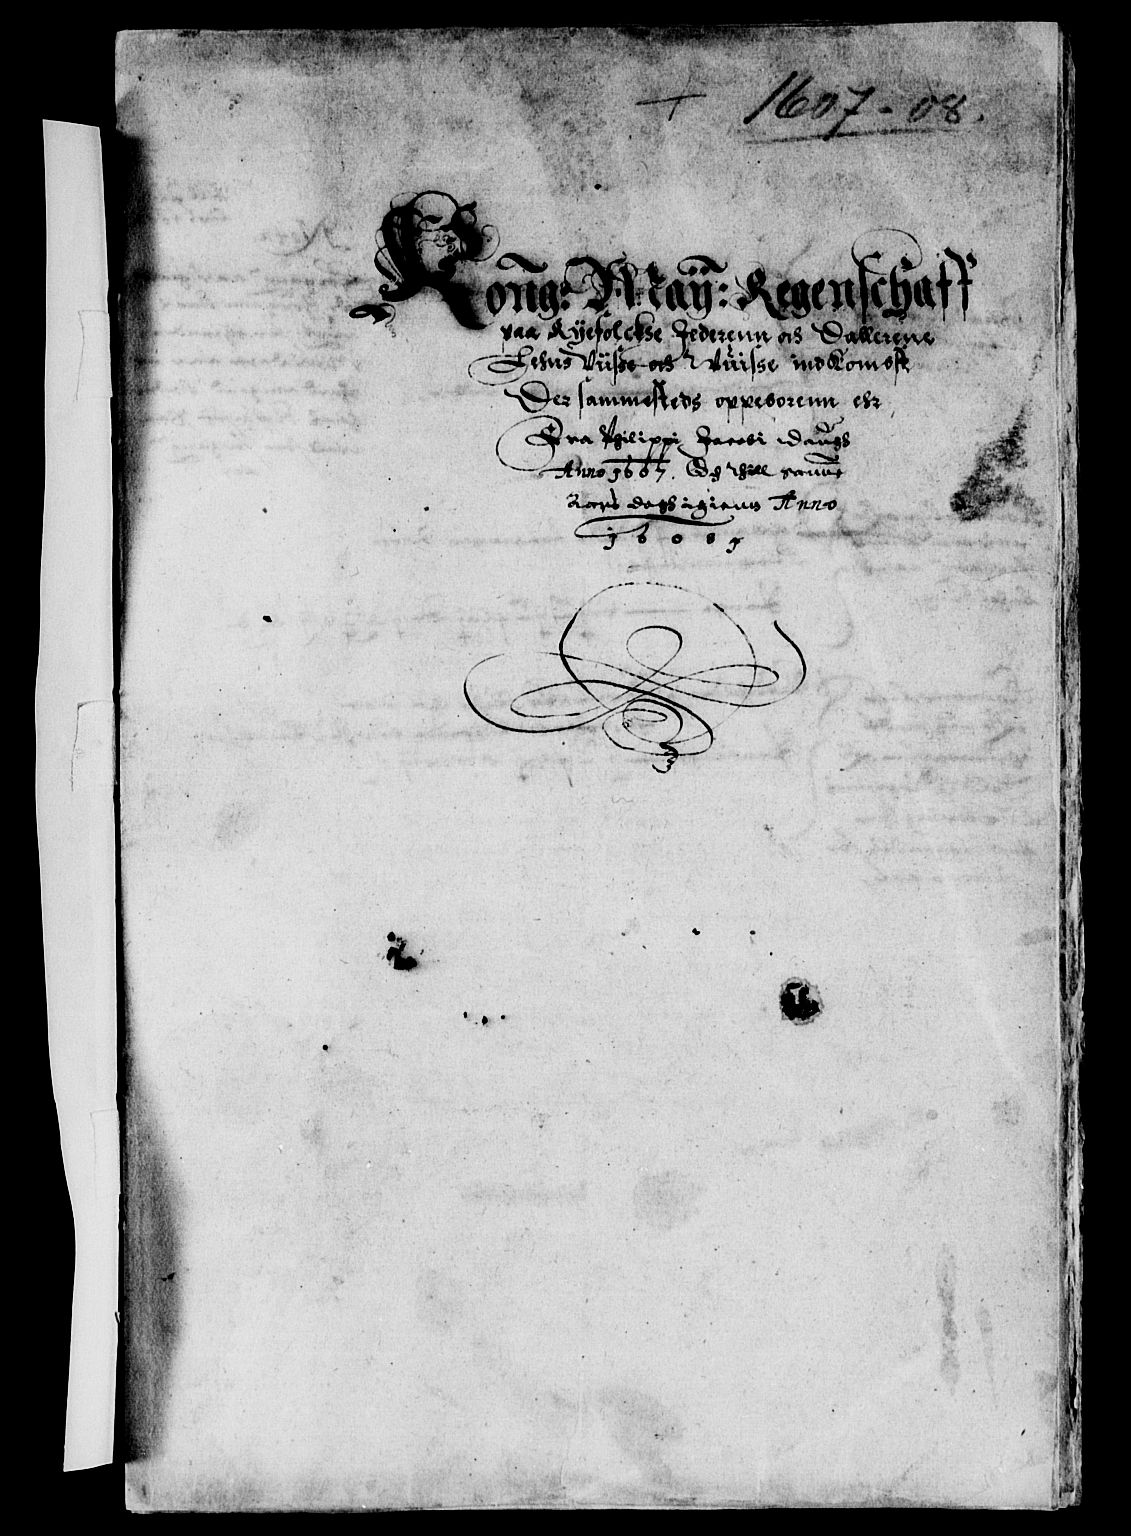 + 1607-08.
Kong: May: Regenschaff
paa Ryefølckse Jederenn och Dallerene
Lehns Viisse och Uviisse indkomst
Der sammesteds oppeborenn ehr
Fra Philippi Jacobi dagh
Anno 1607. Och thill samme
Aars dagh igienn Anno
1608